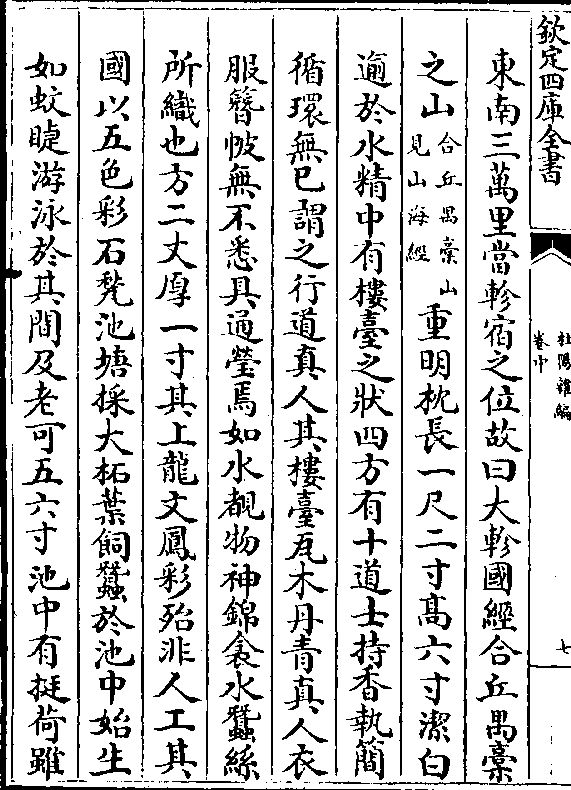 欽定四庫全書
杜陽雜編
卷中
七
東南三萬里當軫宿之位故曰大軫國經合丘禺稾
之山合丘禺稾山見山海經重明枕長一尺二寸髙六寸潔白
逾於水精中有樓臺之狀四方有十道士持香執簡
循環無已謂之行道真人其樓臺瓦木丹青真人衣
服簪帔無不悉具通瑩焉如水覩物神錦衾水蠶絲
所織也方二丈厚一寸其上龍文鳳彩殆非人工其
國以五色彩石甃池塘採大柘葉飼蠶於池中始生
如蚊睫游泳於其間及老可五六寸池中有挺荷雖